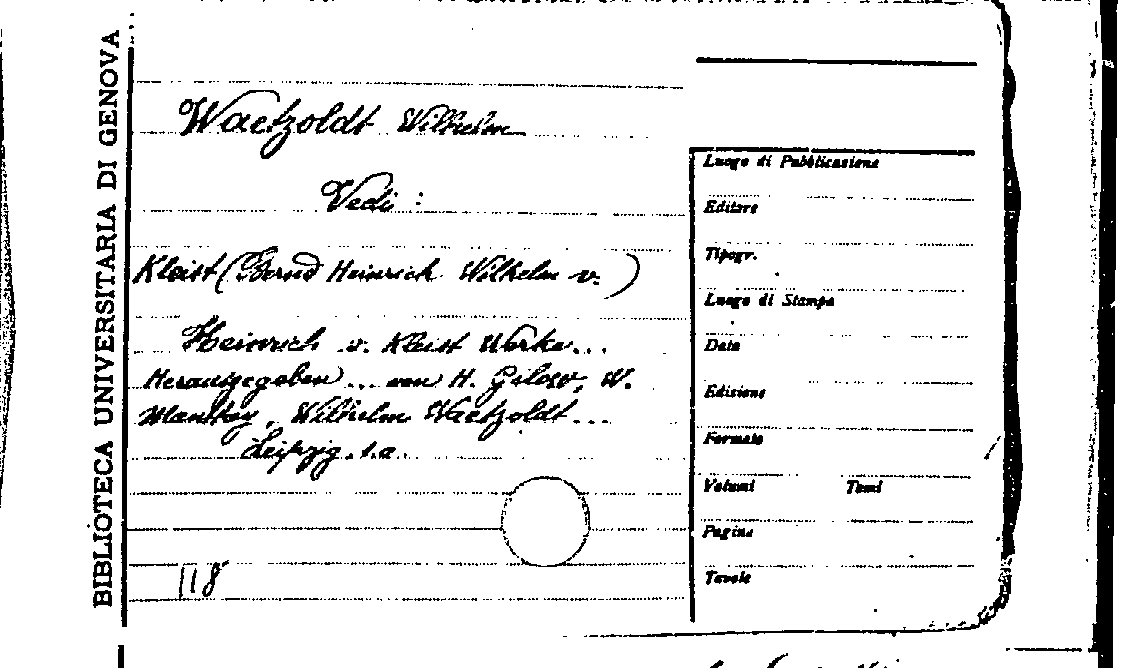 BIBLIOTECA UNIVERSITARIA DI GENOVA
Waetzoldt Wilhelm
Vedi :
Kleist (Bernd Heinrich Wilhelm v. )
Heinrich v. Kleist Werke...
Herausgegeben ... von H. Gilow, W.
Manthey, Wilhelm Waetzoldt ...
Leipzig. s.a.
118
Luogo di Pubblicazione
Editore
Tipogr.
Luogo di Stampa
Data
Edizione
Formato
Volumi Tomi
Pagine
Tavole